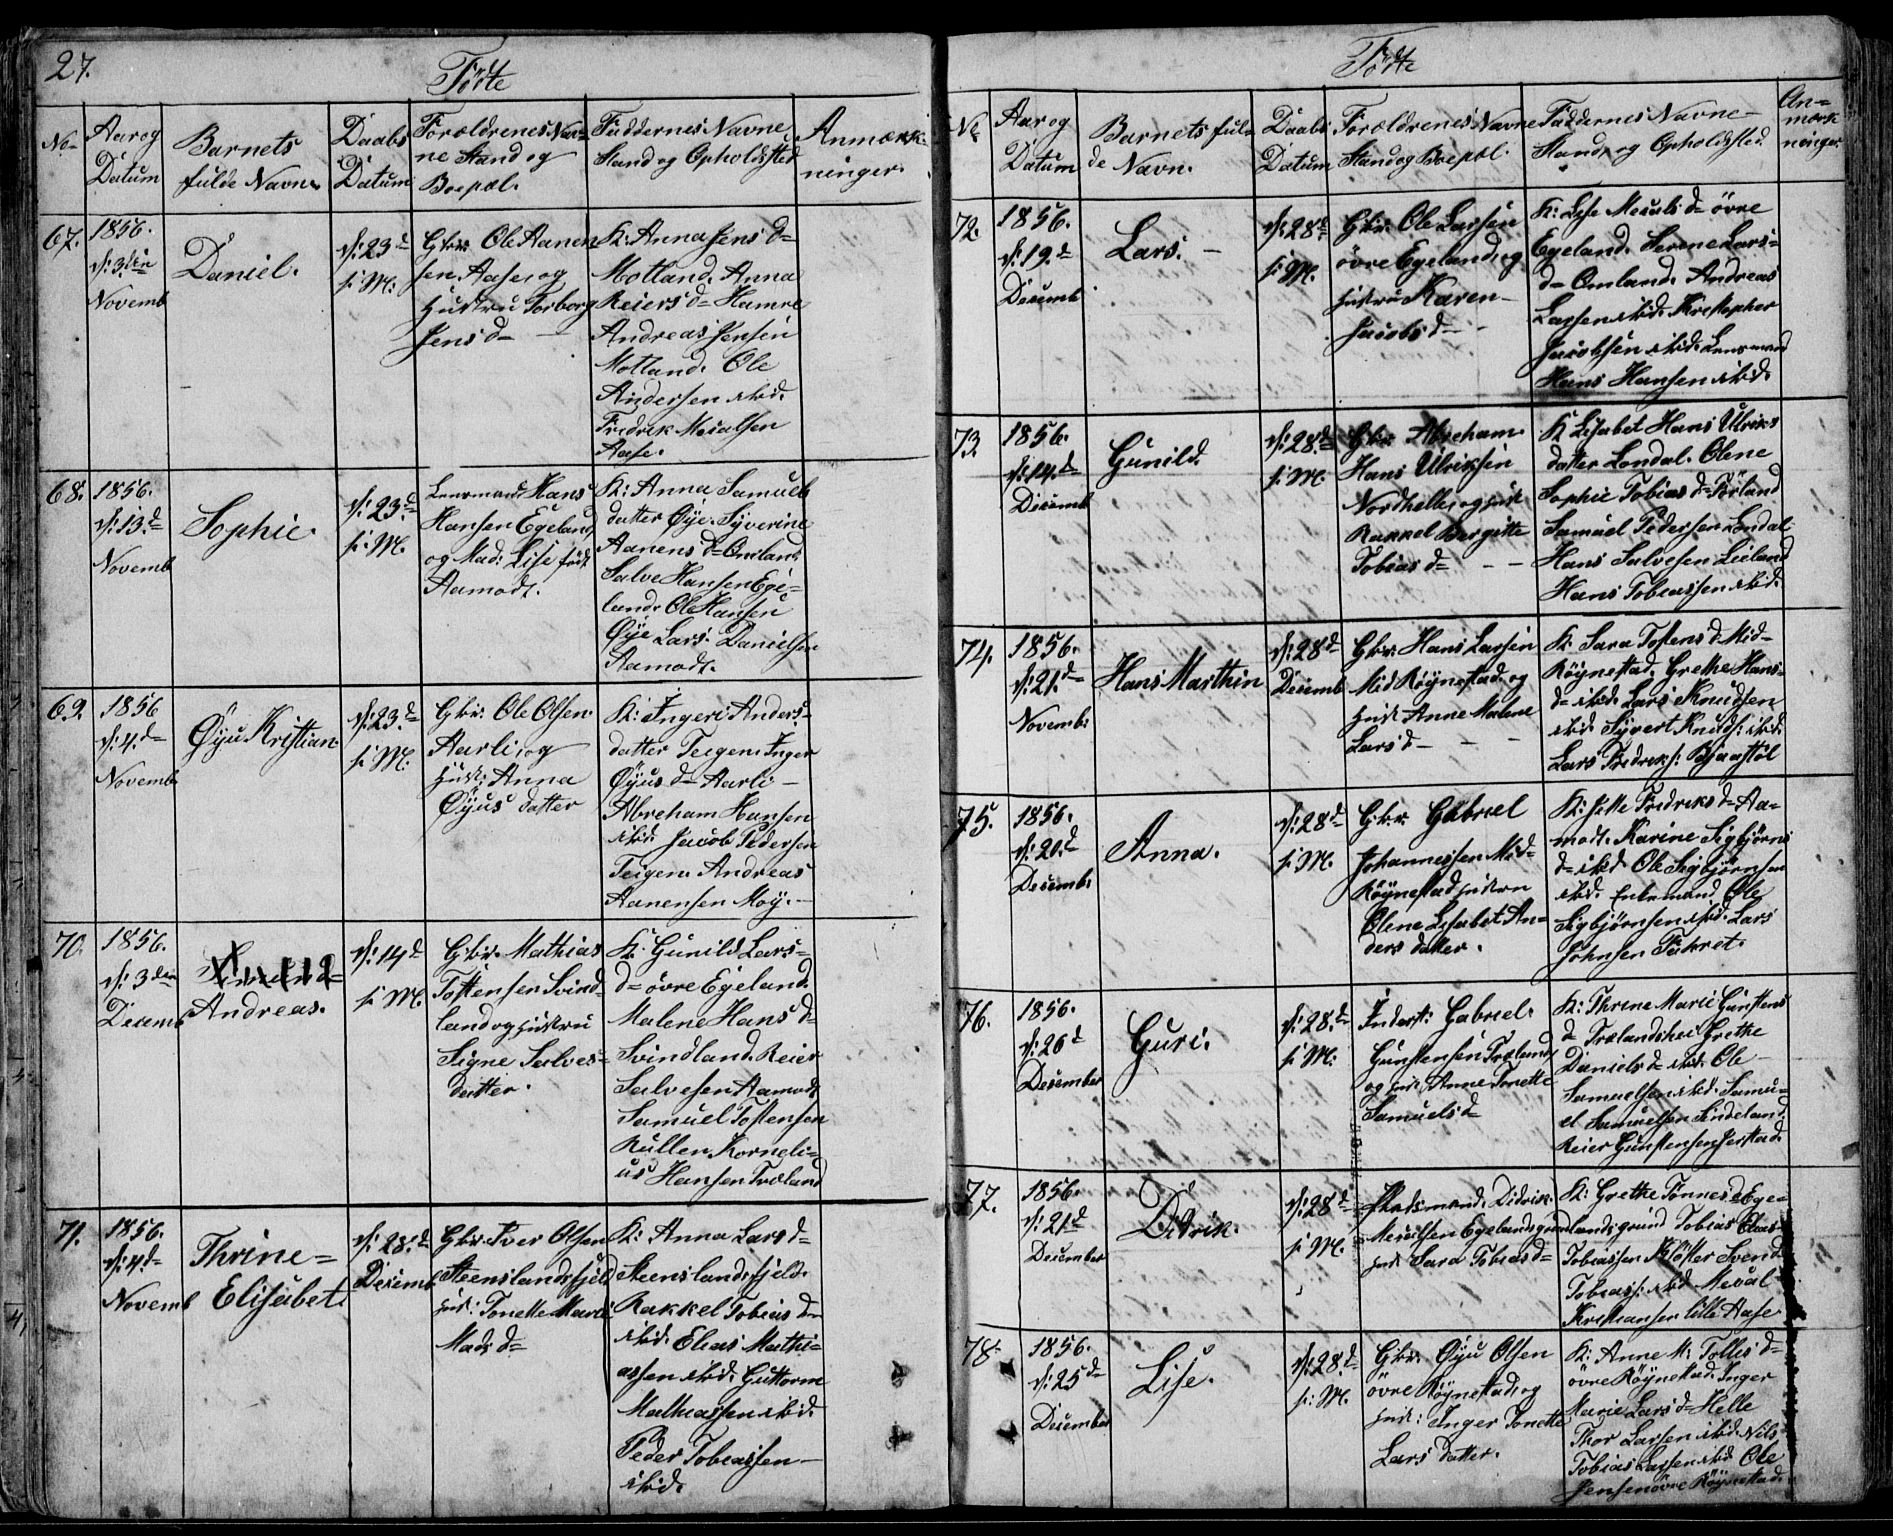 27.
Födte
No
Aar og
Datum
Barnets
fulde Navn.
Daabs
Datum
Forældrenes Nav-
ne Stand og
Boepæl.
Faddernes Navne
Stand og Opholdsted
Anmærk-
ninger.
67.
1856.
d: 3die
Novemb
Daniel.
d: 23d
s: M:
Gbr: Ole Aanen
sen Aase, og
Hustru Torborg
Jens d=
K: Anna Jens d=
Motland. Anna
Reiers d= Hamre
Andreas Jensen
Motland. Ole
Andersen ibid.
Fredrik Meialsen
Aase.
68.
1856.
d: 13.d
Novemb
Sophie.
d: 23.d
s: M.
Lensmand Hans
Hansen Egeland
og Mad: Lise født
Aamodt.
K: Anna Samuels
datter Øye. Syverine
Aanens d= Omland
Salve Hansen Ege-
land. Ole Hansen
Øye Lars Danielsen
Aamodt.
69.
1856
d: 4.d
Novemb
Øyu Kristian
d: 23.d
s: M:
Gbr: Ole Olsen
Aarli, og
Hust: Anna
Øyus datter
K: Ingeri Anders-
datter Teigen. Inger
Øyus d= Aarli -
Abreham Hansen
ibid. Jacob Pedersen
Teigen. Andreas
Aanensen Moy.
70.
1856.
d: 3den
Decemb
Andreas.
d: 14d
s: M.
Gbr. Mathias
Tostensen Svind-
land og Hustru
Signe Salves-
datter.
K: Gunild Lars-
d= övre Egeland.
Malene Hans d=
Svindland. Reier
Salvesen Aamodt
Samuel Tostensen
Rullen. Korneli-
us Hansen Træland
71.
1856.
d: 4.d
Novemb
Thrine=
Elisabet.
d: 28.d
Decemb
Gbr. Iver Olsen
Steenslandsfjeld
Hust: Tonette Marie
Mads d=
K: Anna Lars d=
Steenslandsfjeld.
Rakkel Tobias d=
ibid. Elias Mathi-
assen ibid. Guttorm
Mathiassen ibid.
Peder Tobiassen
ibid.
Födte
No
Aar og
Datum
Barnets ful-
de Navn.
Daabs
Datum
Forældrenes Navne
Stand og Boepæl.
Faddernes Navne
Stand, og Opholdsted.
An-
mærk
ninger.
72.
1856.
d: 19.d
Decemb
Lars.
d: 28d
s: M.
Gbr. Ole Larsen
övre Egeland, og
Hustru Karen
Jacobs d=
K: Lise Meials d= övre
Egeland. Serene Lars-
d= Omland. Andreas
Larsen ibid. Kristopher
Jacobsen ibid. Lensmand
Hans Hansen ibid.
73.
1856.
d: 14.d
Decemb
Gunild.
d: 28d
s: M.
Gbr. Abreham
Hans Ulriksen
Nordhelle, og Hust
Rakkel Bergitte
Tobias d=
K: Lisabet Hans Ulriks
datter Londal. Olene
Sophie Tobias d= Förland
Samuel Pedersen Londal
Hans Salvesen Leiland
Hans Tobiassen ibid.
74.
1856.
d: 21.d
Novemb:
Hans Marthin
d: 28d
Decemb
Gbr. Hans Larsen
Mid Röynestad og
Hust. Anne Malene
Lars d=
K: Sara Tostens d= Mid-
Röynestad. Grethe Hans-
d= ibid. Lars Knudsen
ibid. Syvert Knuds: ibid.
Lars Fredriks: Bjaastöl
75.
1856.
d: 20.d
Decemb:
Anna.
d: 28d
s: M.
Gbr. Gabriel
Johannessen Mid-
Röynestad Hustru
Olene Lisabet An-
ders datter.
K: Jette Fredriks d= Aa-
modt. Karine Sigbjörns
d= ibid. Ole Sigbjörnsen
ibid. Enkemand Ole
Sigbjörnsen ibid. Lars
Johnsen Fükret.
76.
1856.
d: 26d
Desember
Guri.
d: 28.d
s: M.
Inderst: Gabriel
Gunstensen Træland
og Hust. Anne Tonette
Samuels d=
K: Thrine Marie Gunstens
d= Trælandshei Grethe
Daniels d= ibid. Ole
Samuelsen ibid. Samu-
el Samuelsen Sindeland.
Reier Gunstensen Jerstad.
77.
1856.
d: 21d
Desember
Didrik.
d: 28d
s: M.
Pladsmand. Didrik
Meialsen Egelandsgrund
Hust Sara Tobias d=
K: Grethe Tönnes d= Ege-
landsgrund Tobias Elias
Tobiassen Klötter Svend
Tobiass: ibid Meial
Kristiansen lille Aase
78.
1856.
d: 25d
Desember
Lise.
d: 28.d
s: M.
Gbr. Øyu Olsen
övre Röynestad, og
Hust: Inger Tonette
Lars datter.
K: Anne M: Tollis d=
övre Röynestad. Inger
Marie Lars d= Helle
Thor Larsen ibid. Nils
Tobias Larsen ibid Ole
Jensen övre Röynestad.